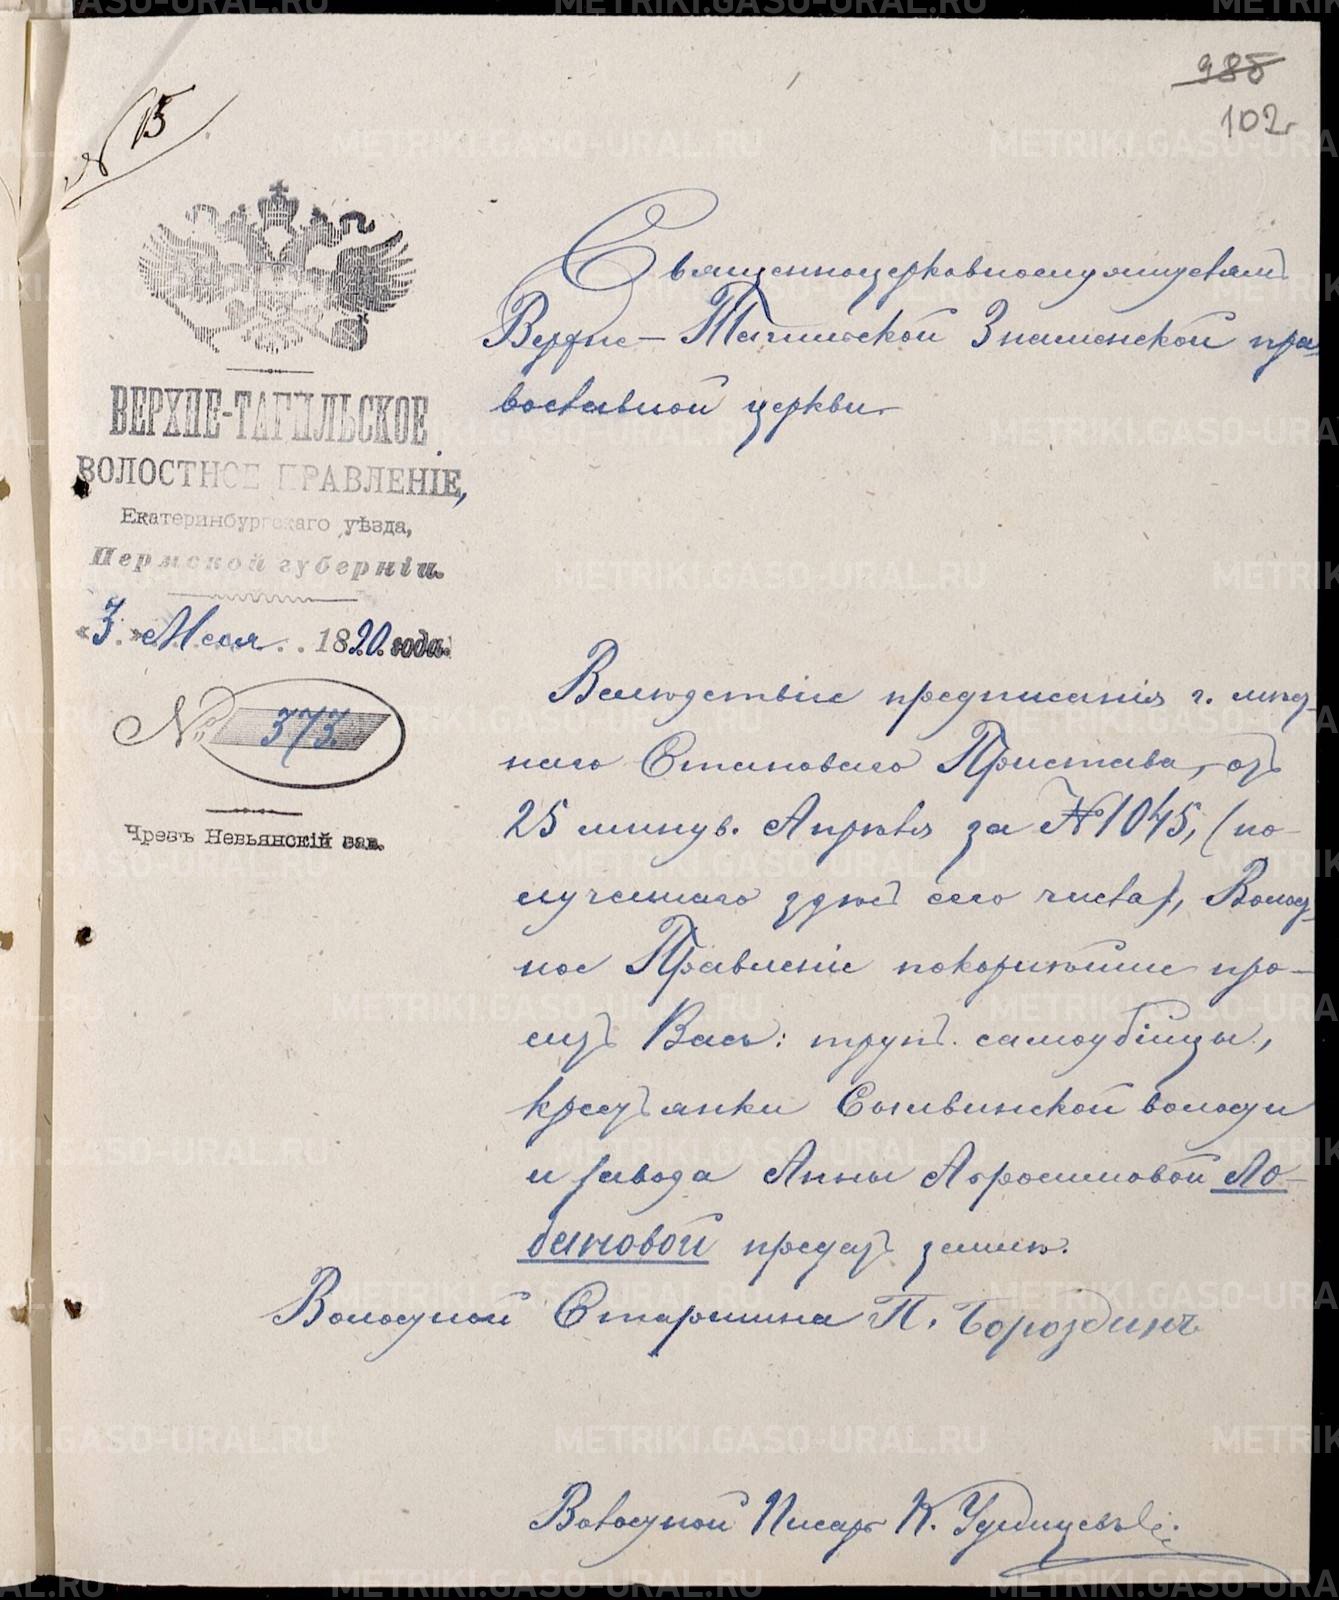 № 15
985
102
ВЕРХНЕ-ТАГИЛЬСКОЕ
ВОЛОСТНОЕ ПРАВЛЕНІЕ,
Екатеринбургскаго уѣзда,
Пермской губерніи.
«3» Мая 1890 года.
№ 373
Чрезъ Невьянскій зав.
Священноцерковнослужителямъ
Верхне-Тагильской Знаменской пра
вославной церкви
Вслѣдствіе предписанія г. мѣст-
наго Становаго Пристава, отъ
25 минув. Апрѣля за № 1045, (по-
лученнаго здѣсь сего числа), Волост-
ное Правленіе покорнѣйше про-
ситъ Васъ: трупъ самоубійцы,
крестьянки Сылвинской волости
и завода Анны Абросимовой Ло-
бановой предать землѣ.
Волостной Старшина П. Бороздинъ
Волостной Писарь К.
METRIKI.GASO-URAL.RU